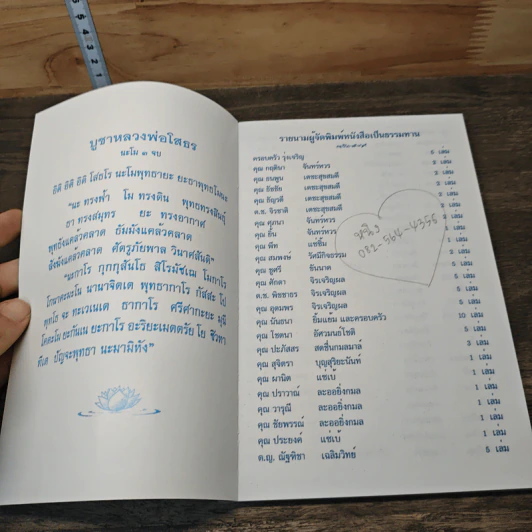 บูชาหลวงพ่อโสธร
นะโม ๓ จบ
อิติ อิติ อิติ โสธโร นะโมพุทธายะ ยะธาพุทโมนะ
"นะ ทรงฟ้า โม ทรงดิน พุทธทรงสินธุ์
ธา ทรงสมุทร ยะ ทรงอากาศ
พุทธังแคล้วคลาด ธัมมังแคล้วคลาด
สังฆังแคล้วคลาด ศัตรูภัยพาล วินาศสันติ"
"นะกาโร กุกกุสันโธ สิโรมัชเฌ โมกาโร
โกนาคะมะโน นานาจิตเต พุทธากาโร กัสสะ โป
พุทโธ จะ ทะเวเนเต ธากาโร ศรีศากะยะ มุนี
โคตะโม ยะกันเน ยะกาโร อะริยะเมตตรัย โย ชิวหา
ทีเต ปัญจะพุทธา นะมามิหัง"
รายนามผู้จัดพิมพ์หนังสือเป็นธรรมทาน
ครอบครัว รุ่งเจริญ 5 เล่ม
คุณ กฤตินา จันทร์หวร 2 เล่ม
คุณ ธนพูน เตชะสุขสมดี 2 เล่ม
คุณ ธัชชัย เตชะสุขสมดี 2 เล่ม
คุณ ธัญวดี เตชะสุขสมดี 2 เล่ม
ด.ช. จิรชาติ เตชะสุขสมดี เล่ม
คุณ ศุภนา จันทร์หวร เล่ม
คุณ ยิ้น จันทร์หวร เล่ม
คุณ พีท แซ่ซิ้ม เล่ม
คุณ สมพงษ์ รัศมีกิจธรรม เล่ม
คุณ ชูศรี ธันนาค 5 เล่ม
คุณ ศักดา จิรเจริญผล 5 เล่ม
ด.ช. พัชชาธร จิรเจริญผล 5 เล่ม
คุณ อุดมพร จิรเจริญผล 5 เล่ม
คุณ นันธนา ยิ้มแย้ม และครอบครัว 10 เล่ม
คุณ โชตนา อัศวมนย์โชติ 5 เล่ม
คุณ ปะภัสสร สดชื่นกมลมาล์ 3 เล่ม
คุณ สุจิตรา บุญสุริยะนันท์ 1 เล่ม
คุณ ผานิต แซ่เบ้ 1 เล่ม
คุณ ปราวาณ์ ละออยิ่งกมล 1 เล่ม
คุณ วารุณี ละออยิ่งกมล 1 เล่ม
คุณ ชัยพรรณ์ ละออยิ่งกมล 1 เล่ม
คุณ ประยงค์ แซ่เบ้ 1 เล่ม
ด.ญ. ณัฐทิชา เฉลิมวิทย์ 5 เล่ม
หนึ่ง
082-564-4355
5
4
3
2
1